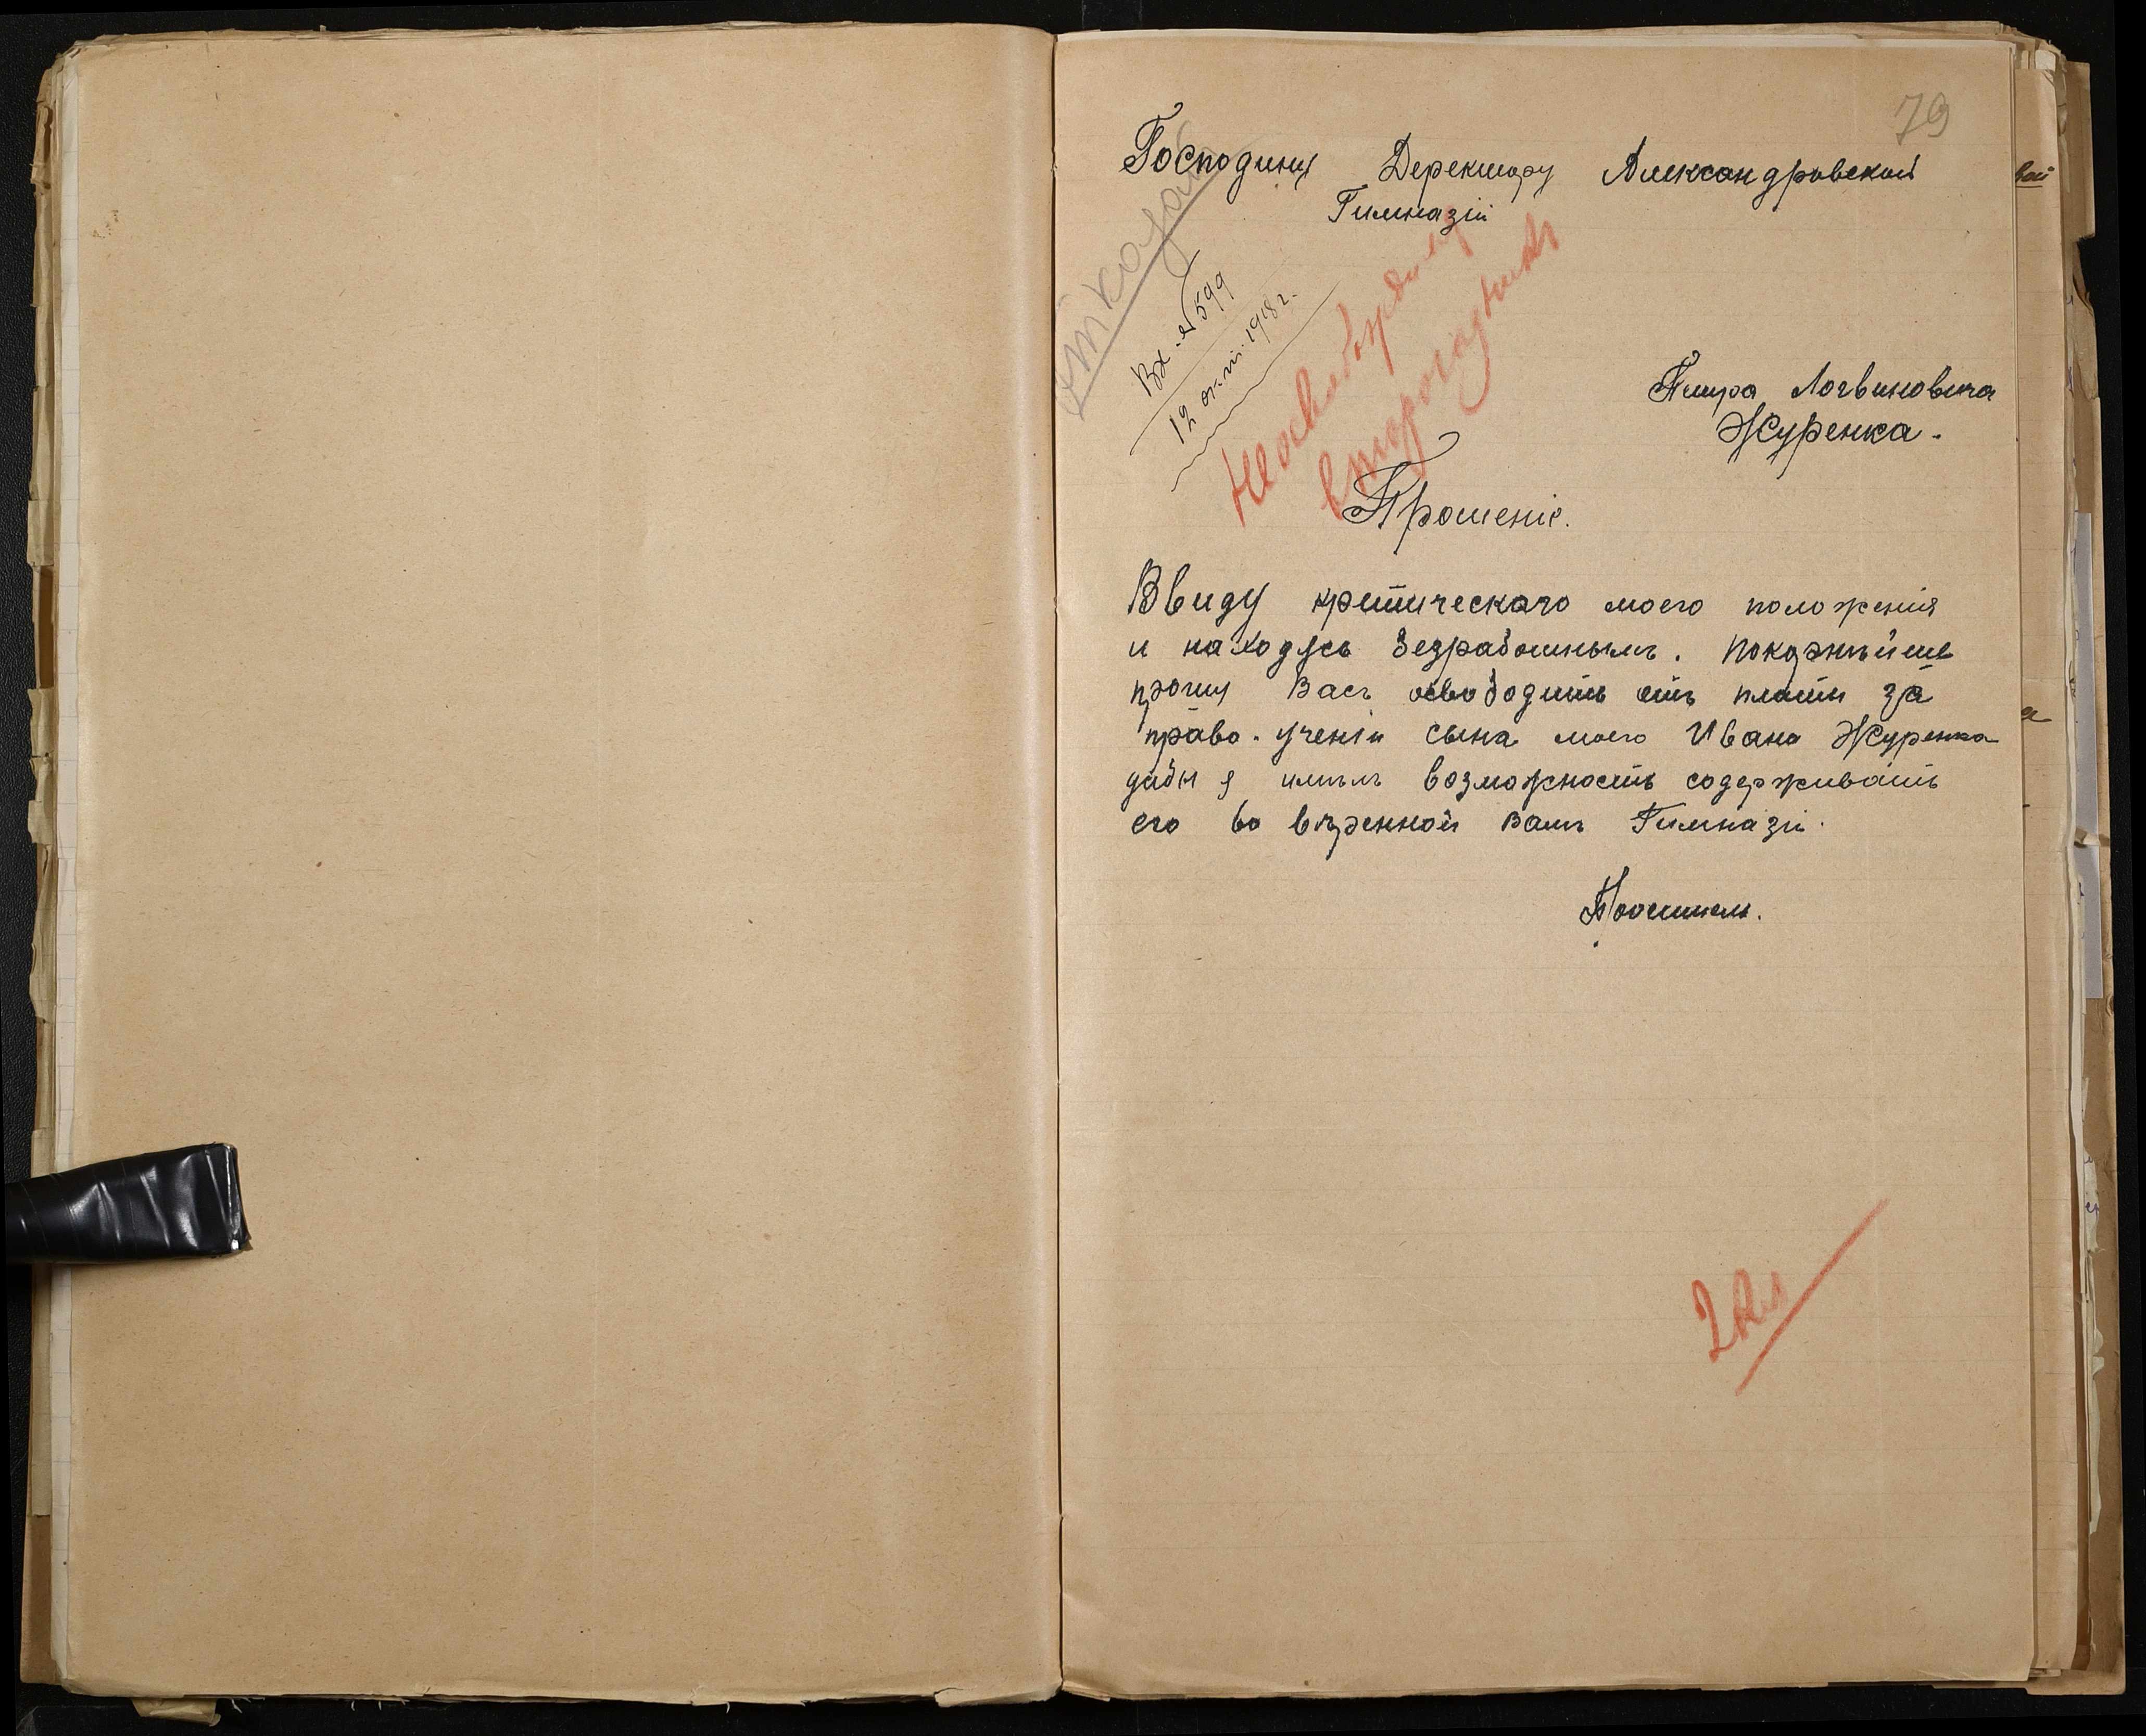 79
Господину Деректору Александровской
Гимназіи
отказать
Вх. № 599
12 окт. 1918 г.
Не освобождать
второгодник
Петра Логвиновича
Журенка.
Прошеніе.
Ввиду критическаго моего положенія
и находусь безработнымъ. Покорнѣйше
прошу Васъ освободить отъ платы за
право. ученія сына моего Ивана Журенка
дабы я имѣлъ возможность содерживать
его во ввѣренной Вамъ Гимназіи.
Проситель.
2 кл